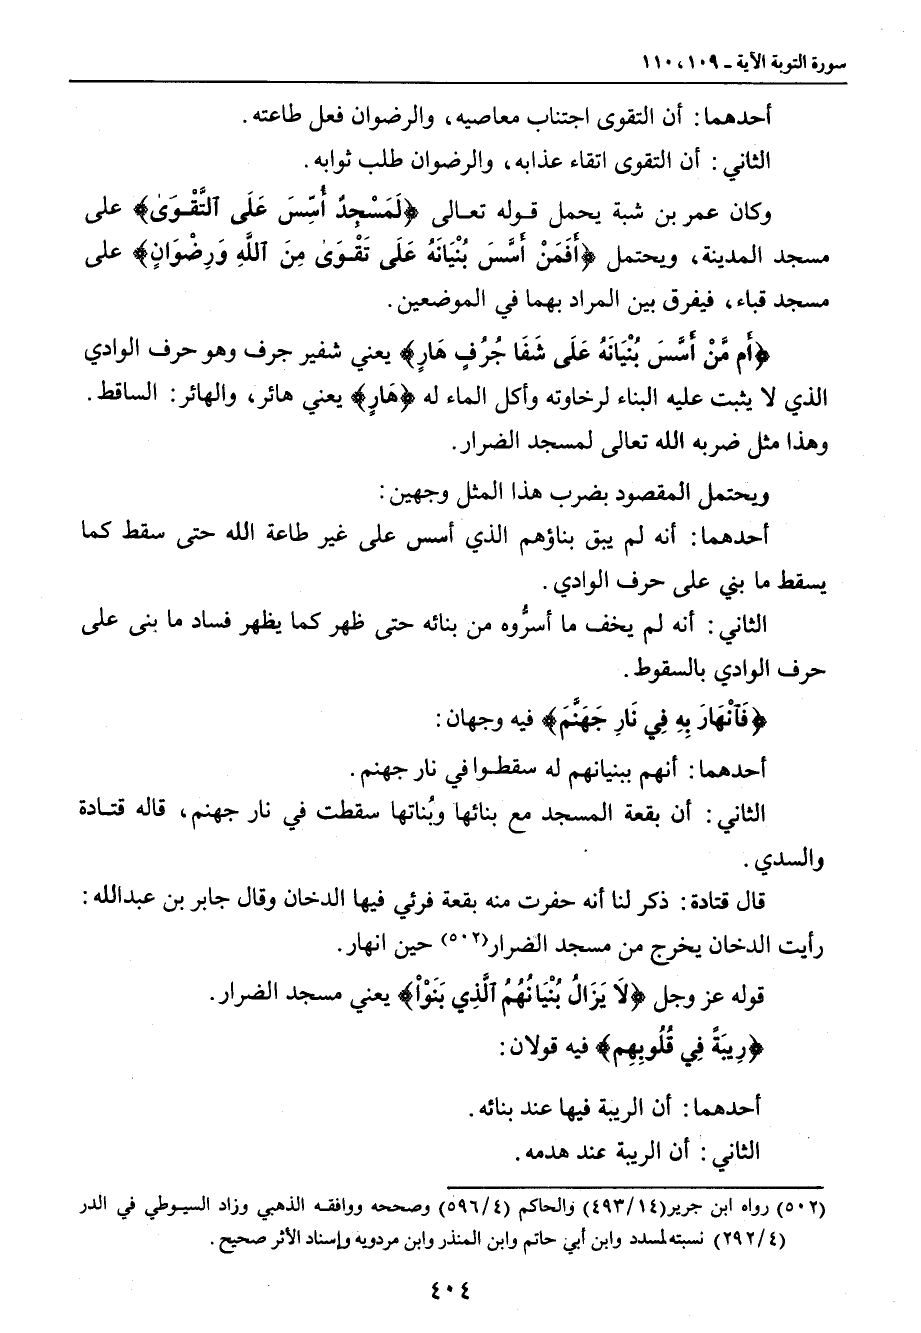 سورة التوبة الآية ـ ١٠٩، ١١٠
أحدهما: أن التقوى اجتناب معاصيه، والرضوان فعل طاعته.
الثاني: أن التقوى اتقاء عذابه، والرضوان طلب ثوابه.
وكان عمر بن شبة يحمل قوله تعالى ﴿لَمَسْجِدٌ أُسِّسَ عَلَى ٱلتَّقْوَىٰ﴾ على
مسجد المدينة، ويحتمل ﴿أَفَمَنْ أَسَّسَ بُنْيَانَهُ عَلَى تَقْوَىٰ مِنَ ٱللَّهِ وَرِضْوَانٍ﴾ على
مسجد قباء، فيفرق بين المراد بهما في الموضعين.
﴿أَم مَّنْ أَسَّسَ بُنْيَانَهُ عَلَى شَفَا جُرُفٍ هَارٍ﴾ يعني شفير جرف وهو حرف الوادي
الذي لا يثبت عليه البناء لرخاوته وأكل الماء له ﴿هَارٍ﴾ يعني هائر، والهائر: الساقط.
وهذا مثل ضربه الله تعالى لمسجد الضرار.
ويحتمل المقصود بضرب هذا المثل وجهين:
أحدهما: أنه لم يبق بناؤهم الذي أسس على غير طاعة الله حتى سقط كما
يسقط ما بني على حرف الوادي.
الثاني: أنه لم يخف ما أسرُّوه من بنائه حتى ظهر كما يظهر فساد ما بنى على
حرف الوادي بالسقوط.
﴿فَٱنْهَارَ بِهِ فِي نَارِ جَهَنَّمَ﴾ فيه وجهان:
أحدهما: أنهم ببنيانهم له سقطوا في نار جهنم.
الثاني: أن بقعة المسجد مع بنائها وبُناتها سقطت في نار جهنم، قاله قتادة
والسدي.
قال قتادة: ذكر لنا أنه حفرت منه بقعة فرئي فيها الدخان وقال جابر بن عبدالله:
رأيت الدخان يخرج من مسجد الضرار(٥٠٢) حين انهار.
قوله عز وجل ﴿لَا يَزَالُ بُنْيَانُهُمُ ٱلَّذِي بَنَوْاْ﴾ يعني مسجد الضرار.
﴿رِيبَةً فِي قُلُوبِهِم﴾ فيه قولان:
أحدهما: أن الريبة فيها عند بنائه.
الثاني: أن الريبة عند هدمه.
(٥٠٢) رواه ابن جرير(٤٩٣/١٤) والحاكم (٥٩٦/٤) وصححه ووافقه الذهبي وزاد السيوطي في الدر
(٢٩٢/٤) نسبته لمسدد وابن أبي حاتم وابن المنذر وابن مردويه وإسناد الأثر صحيح.
٤٠٤